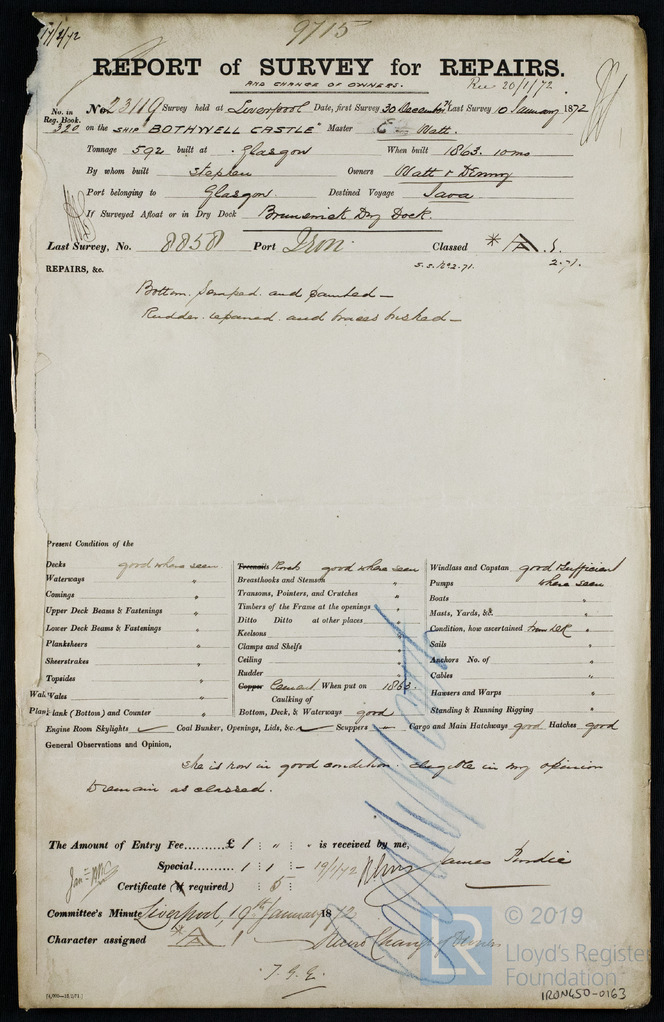 17/2/72
9715
REPORT of SURVEY for REPAIRS.
AND CHANGE OF OWNERS.
Rec 20/1/72
No. in Reg. Book. 320
No. 23119 Survey held at Liverpool Date, first Survey 30 December Last Survey 10 January 1872
on the SHIP "BOTHWELL CASTLE" Master Watt.
Tonnage 592 built at Glasgow When built 1863. 10mo
By whom built Stephen Owners Watt & Denny
Port belonging to Glasgow Destined Voyage Java
If Surveyed Afloat or in Dry Dock Brunswick Dry Dock.
Last Survey, No. 8858 Port Iron Classed * A 1.
S.S. No 2-71. 2-71.
REPAIRS, &c.
Bottom scraped and painted —
Rudder repaired and braces bushed —
Present Condition of the
Decks good where seen
Waterways "
Comings "
Upper Deck Beams & Fastenings "
Lower Deck Beams & Fastenings "
Planksheers "
Sheerstrakes "
Topsides "
Wales "
Plank (Bottom) and Counter "
Treenails Rivets good where seen
Breasthooks and Stemson "
Transoms, Pointers, and Crutches "
Timbers of the Frame at the openings "
Ditto Ditto at other places "
Keelsons "
Clamps and Shelfs "
Ceiling "
Rudder "
Copper Cement When put on 1863.
Caulking of
Bottom, Deck, & Waterways good
Windlass and Capstan good & sufficient
Pumps where seen
Boats "
Masts, Yards, &c. "
Condition, how ascertained from deck "
Sails "
Anchors No. of "
Cables "
Hawsers and Warps "
Standing & Running Rigging "
Engine Room Skylights Coal Bunker, Openings, Lids, &c. Scuppers — Cargo and Main Hatchways good Hatches good
General Observations and Opinion,
She is now in good condition eligible in my opinion
to remain as classed.
The Amount of Entry Fee.........£ 1 : " : " is received by me,
Special.........1 : 1 : — 19/1/72 James Purdie
Certificate (if required) : 5 :
Committee's Minute Liverpool, 19th January 1872
Character assigned A 1 — Record Change of Owners
T.G.E.
© 2019
Lloyd's Register
Foundation
IRON650-0163